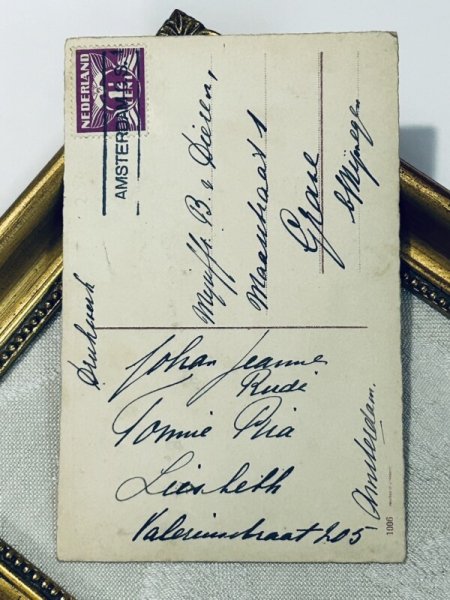 NEDERLAND
1½
CENT
AMSTERDAM C.S.
Drukwerk
Mejuffr. B. v Dieren,
Maasstraat 1
Grave
b/Nijmegen
Johan Jeanne
Rudi
Tonnie Pia
Liesbeth
Valeriusstraat 205,
Amsterdam.
1996